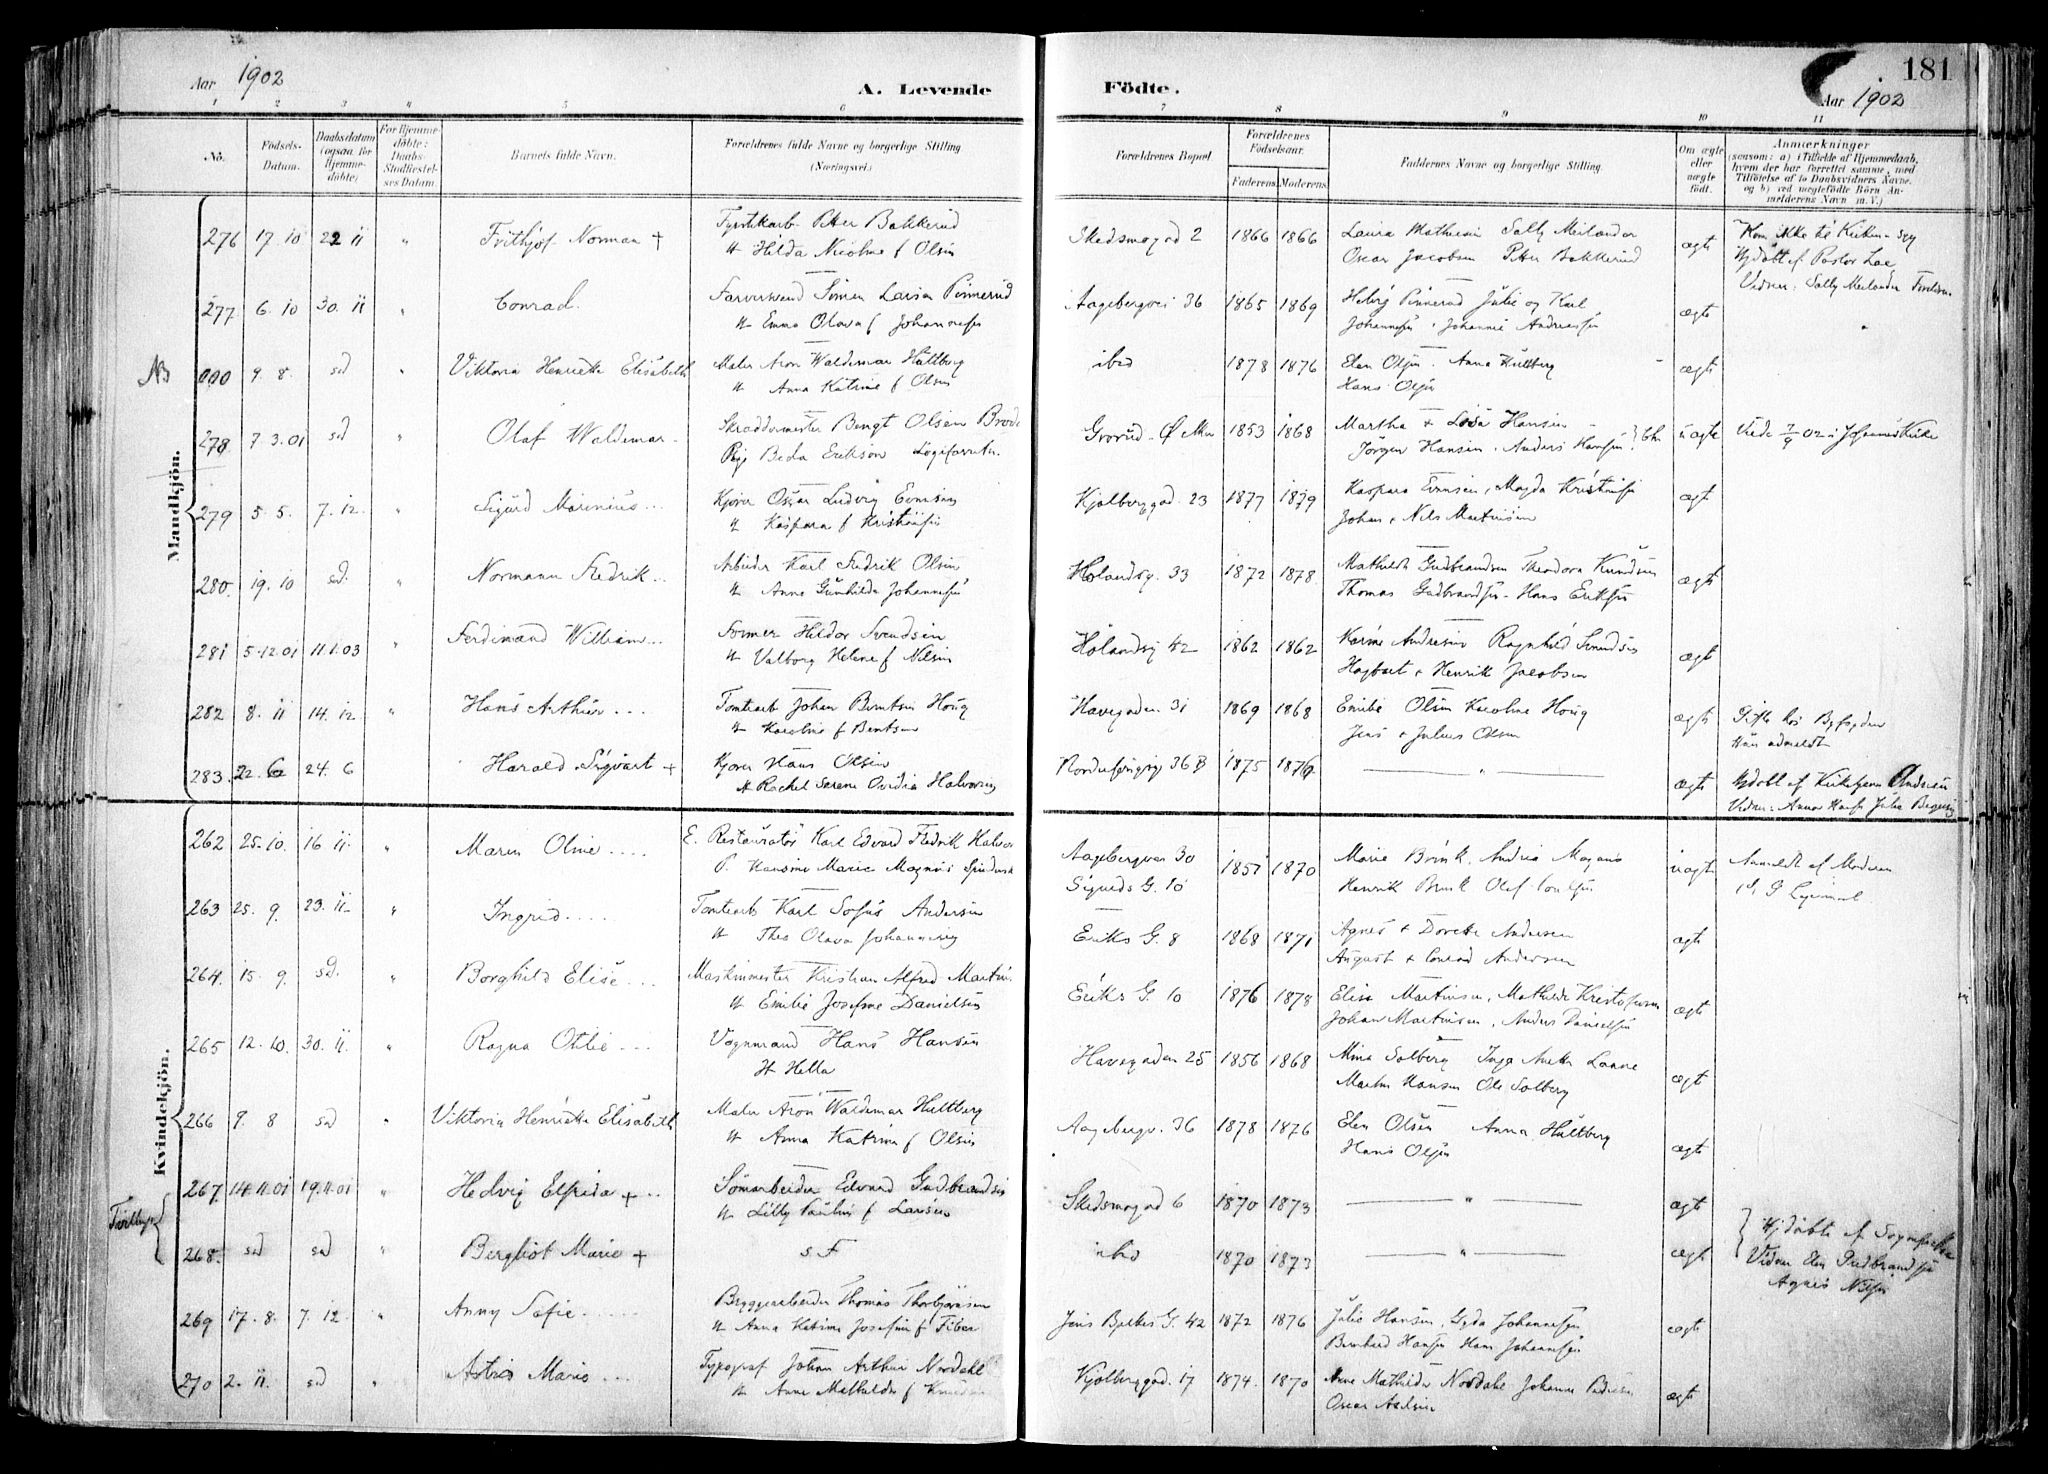 Aar 1902
A. Levende
Födte.
181
Aar 1902
1 2 3 4 5 6 7 8 9 10 11
No.
Födsels-
Datum.
Daabsdatum
(ogsaa for
Hjemme-
döbte)
For Hjemme-
döbte:
Daabs-
Stadfæstel-
ses Datum
Barnets fulde Navn.
Forældrenes fulde Navne og borgerlige Stilling
(Næringsvei.)
Forældrenes Bopæl
Forældrenes
Födselsaar.
Faderens Moderens
Faddernes Navne og borgerlige Stilling.
Om ægte
eller
uægte
födt.
Anmærkninger
(saasom: a) i Tilfælde af Hjemmedaab,
hvem der har forrettet samme, med
Tilföielse af to Daabsvidners Navne,
og b) ved uægtefödte Börn An-
melderens Navn m. V.)
Mandkjön.
276 17. 10 22 11 " Frithjof Norman +
Petter Bakkerud
Hilda Nicoline f Olsen
Skedsmogad 2 1866 1866
Laura Mathiesen Sally Meilander
Oscar Jacobsen Petter Bakkerud
ægte
Kom ikke til Kirken - syg
Hjdöbt af Pastor Lae
Vidner: Sally Meilander
277 6. 10 30. 11 " Conrad.
Farversvend Simen Larsen Pinnerud
H. Emma Olava f Johannesen
Aagebergvei 36 1865 1869
Helvig Pinnerud Julie og Karl
Johannesen, Johannes Andreassen
ægte
NB 000 9. 8. sd " Viktoria Henriette Elisabeth
Maler Aron Waldemar Hultberg
H. Anna Katrine f Olsen
ibid 1878 1876
Elen Olsen. Anna Hultberg
Hans Olsen
ægte
278 7. 3. 01 sd " Olaf Waldemar
Skræddermester Bengt Olsen
Pige Beda Erikson
Grorud - Ø Aker 1853 1868
Martha + Lisa Hansen
Jörgen Hansen. Anders Hansen
uægte
Viede 7/9 02 i Johannes Kirke
279 5. 5. 7. 12. " Sigurd Marinius
Kjører Oscar Ludvig Evensen
H. Kaspara f Kristiansen
Kjølberggad. 23 1877 1879
Kaspara Evensen, Magda Kristiansen
Johan + Nils Martinsen
ægte
280. 19. 10 sd. " Normann Fredrik
Arbeider Karl Fredrik Olsen
H. Anne Gunhilda Johannesen
Hølandsg. 33 1872 1878.
Mathilda Gudbrandsen Theodora Knudsen
Thomas Gudbrandsen - Hans Eriksen
ægte
281 5. 12. 01 11. 1. 03 " Ferdinand William
Former Hildor Svendsen
H. Valborg Helene f Nilsen
Hølandsg 42 1862 1862
Karine Andresen Ragnhild
Hagbart + Henrik Jacobsen
ægte
282 8. 11 14. 12 " Hans Arthur
Tomtearb Johan Berntsen Houg
H. Karoline f Berntsen
Havegaden 31 1869 1868
Emilie Olsen Karoline Houg
Jens + Julius Olsen
ægte
283. 22. 6 24. 6 Harald Sigvart +
Kjører Hans Olsen
H Rachel Serene Ovidia Halvorsen
36 B 1875 1876
"
ægte
Hjdöbt af Andresen
Kvindekjön.
262 25. 10. 16 11. " Maren Oline
E. Restauratör Karl Edvard Fredrik
P. Hansine Marie Magnus
Aagebergveien 30
Sigurds G. 10
1851 1870
Marie Brink. Andrea Magnus
Henrik Brink Olaf
uægte
Anmeldt af Moderen
263 25. 9. 23. 11 " Ingrid
Tomtearb Karl Sofus Andersen
H Thea Olava Johannesen
Eriks G. 8 1868 1871
Agnes + Dorette Andersen
August + Conrad Andersen
ægte
264. 15. 9. sd. " Borghild Elise
Maskinmester Kristian Alfred
H Emilie Josefine Danielsen
Eriks G. 10 1876 1878
Elise Martinsen, Mathilde Kristofersen
Johan Martinsen, Anders Danielsen
ægte
265 12. 10. 30. 11. " Ragna Otilie
Vognmand Hans Hansen
H Hella
Havegaden 25 1856 1868
Mina Solberg Inga
Martin Hansen Ole Solberg
ægte
266 9. 8 sd " Viktoria Henriette Elisabeth
Maler Aron Waldemar Hultberg
H Anna Katrine f Olsen
Aagebergv. 36 1878 1876
Elen Olsen Anna Hultberg
Hans Olsen
ægte
Tvillinger
267 14. 11. 01 19. 11. 01 " Hedvig Elfrida +
Edvard Gudbrandsen
H. Lilly Pauline f Larsen
Skedsmogad 6 1870 1873
"
ægte
268. sd sd " Bergliot Marie +
s F
ibid 1870 1873
"
ægte
Hjdöbte af
Vidner Elen Gudbrandsen
Agnes Nilsen
269 17. 8. 7. 12. " Anny Sofie
Bryggearbeider Thomas Thorbjørnsen
H. Anna Katrine Josefine f Fiber
Jens Bjelkes G. 42 1872 1876
Julie Hansen, Gyda Johannesen
Bernhard Hansen Hans Johannesen
ægte
270 2. 11. sd " Astrid Marie
Typograf Johan Arthur Nordahl
H. Anne Mathilde f
Kjølberggad. 17 1874. 1870
Anne Mathilde Nordahl Johanne
Oscar Axelsen
ægte